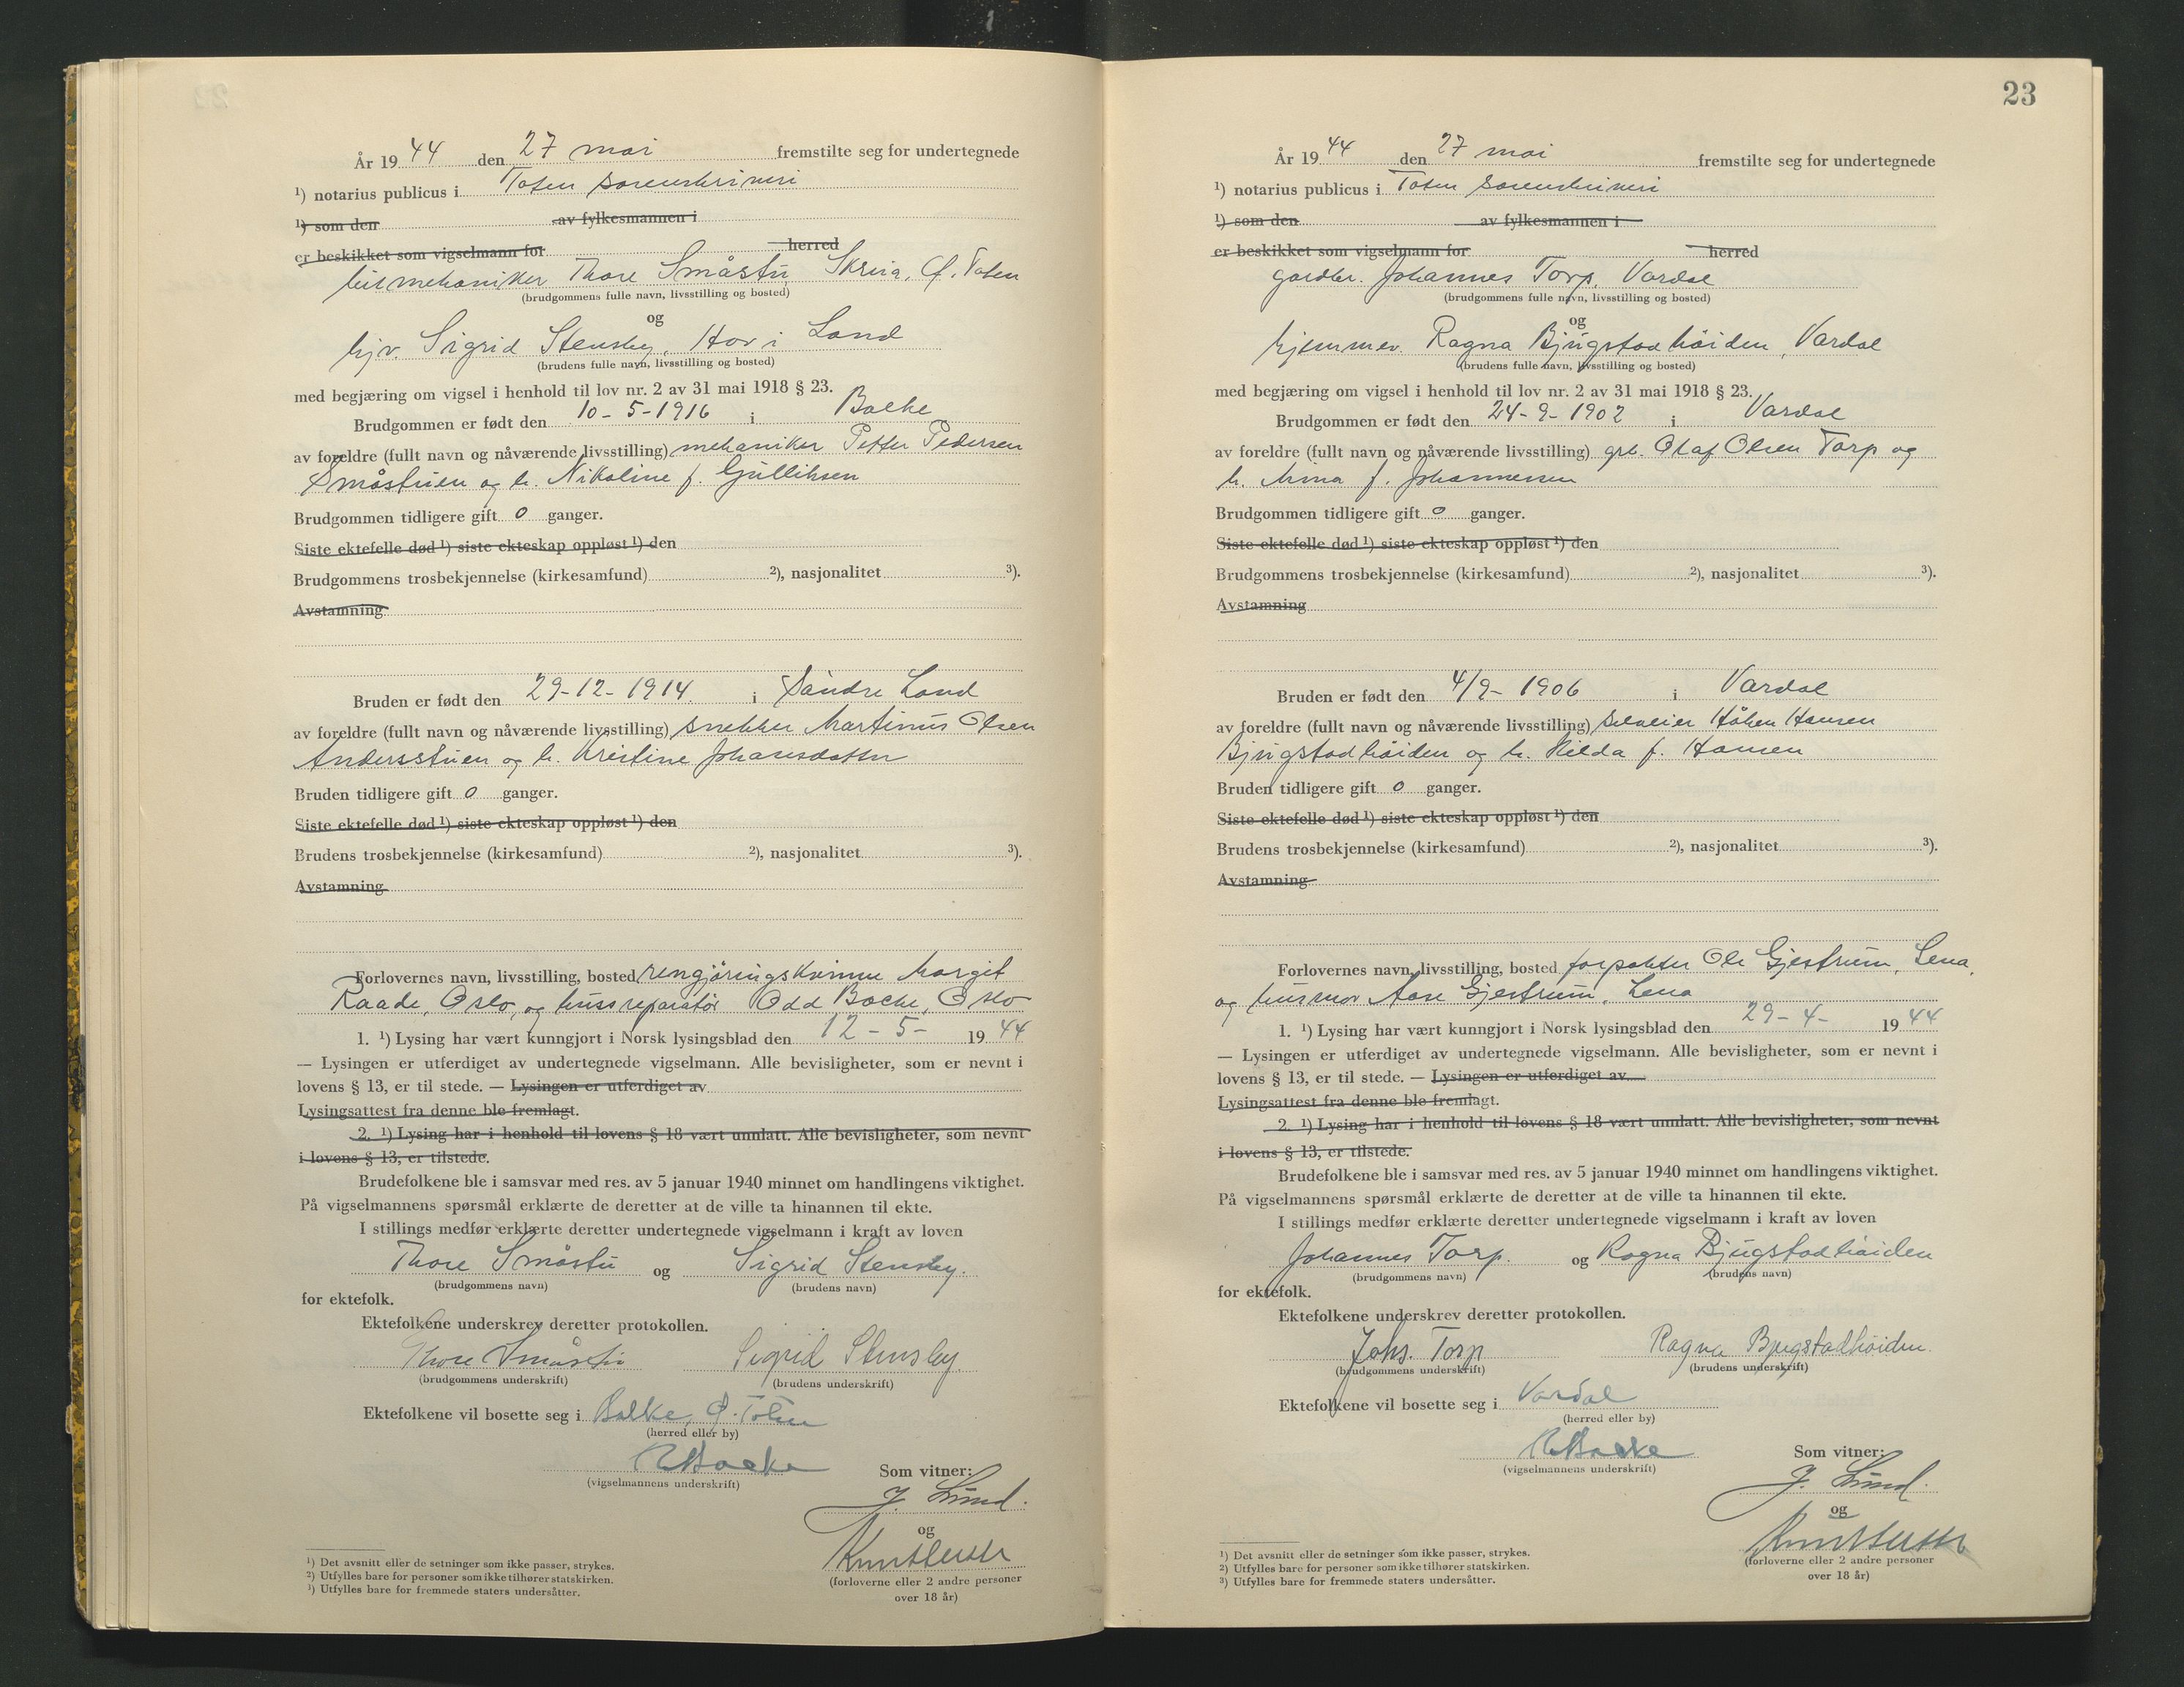 År 1944 den 27 mai fremstilte seg for undertegnede
¹) notarius publicus i Toten sorenskriveri
¹) som den av fylkesmannen i
er beskikket som vigselmann for herred
bilmekaniker Thore Småstu, Skreia, Ø. Toten
(brudgommens fulle navn, livsstilling og bosted)
og
hjv. Sigrid Stensby, Hov i Land
(brudens fulle navn, livsstilling og bosted)
med begjæring om vigsel i henhold til lov nr. 2 av 31 mai 1918 § 23.
Brudgommen er født den 10-5-1916 i Balke
av foreldre (fullt navn og nåværende livsstilling) mekaniker Petter Pedersen
Småstuen og h. Nikoline f. Gulliksen
Brudgommen tidligere gift 0 ganger.
Siste ektefelle død ¹) siste ekteskap oppløst ¹) den
Brudgommens trosbekjennelse (kirkesamfund) ²), nasjonalitet ³).
Avstamning
Bruden er født den 29-12-1914. i Søndre Land
av foreldre (fullt navn og nåværende livsstilling) snekker Martinus Olsen
Andersstuen og h. Kristine Johansdatter
Bruden tidligere gift 0 ganger.
Siste ektefelle død ¹) siste ekteskap oppløst ¹) den
Brudens trosbekjennelse (kirkesamfund) ²), nasjonalitet ³).
Avstamning
Forlovernes navn, livsstilling, bosted rengjøringskvinne Margit
Raade, Oslo, og bussreparatør Odd Bache, Oslo
1. ¹) Lysing har vært kunngjort i Norsk lysingsblad den 12-5- 1944
— Lysingen er utferdiget av undertegnede vigselmann. Alle bevisligheter, som er nevnt i
lovens § 13, er til stede. — Lysingen er utferdiget av
Lysingsattest fra denne ble fremlagt.
2. ¹) Lysing har i henhold til lovens § 18 vært unnlatt. Alle bevisligheter, som nevnt
i lovens § 13, er tilstede.
Brudefolkene ble i samsvar med res. av 5 januar 1940 minnet om handlingens viktighet.
På vigselmannens spørsmål erklærte de deretter at de ville ta hinannen til ekte.
I stillings medfør erklærte deretter undertegnede vigselmann i kraft av loven
Thore Småstu og Sigrid Stensby.
(brudgommens navn) (brudens navn)
for ektefolk.
Ektefolkene underskrev deretter protokollen.
Thore Småstu Sigrid Stensby
(brudgommens underskrift) (brudens underskrift)
Ektefolkene vil bosette seg i Balke, Ø. Toten
(herred eller by)
(vigselmannens underskrift)
Som vitner:
J. Lund.
og
(forloverne eller 2 andre personer
over 18 år)
¹) Det avsnitt eller de setninger som ikke passer, strykes.
²) Utfylles bare for personer som ikke tilhører statskirken.
³) Utfylles bare for fremmede staters undersåtter.
23
År 1944 den 27 mai fremstilte seg for undertegnede
¹) notarius publicus i Toten sorenskriveri
¹) som den av fylkesmannen i
er beskikket som vigselmann for herred
gardbr. Johannes Torp, Vardal
(brudgommens fulle navn, livsstilling og bosted)
og
hjemmev. Ragna Bjugstadhøiden, Vardal
(brudens fulle navn, livsstilling og bosted)
med begjæring om vigsel i henhold til lov nr. 2 av 31 mai 1918 § 23.
Brudgommen er født den 24-9-1902 i Vardal
av foreldre (fullt navn og nåværende livsstilling) grb. Olaf Olsen Torp og
h. f. Johannessen
Brudgommen tidligere gift 0 ganger.
Siste ektefelle død ¹) siste ekteskap oppløst ¹) den
Brudgommens trosbekjennelse (kirkesamfund) ²), nasjonalitet ³).
Avstamning
Bruden er født den 4/9-1906 i Vardal
av foreldre (fullt navn og nåværende livsstilling) selveier Håken Hansen
Bjugstadhøiden og h. Hilda f. Hansen
Bruden tidligere gift 0 ganger.
Siste ektefelle død ¹) siste ekteskap oppløst ¹) den
Brudens trosbekjennelse (kirkesamfund) ²), nasjonalitet ³).
Avstamning
Forlovernes navn, livsstilling, bosted forpakter Ole Gjestrum, Lena,
og husmor Aase Gjestrum, Lena
1. ¹) Lysing har vært kunngjort i Norsk lysingsblad den 29-4- 1944
— Lysingen er utferdiget av undertegnede vigselmann. Alle bevisligheter, som er nevnt i
lovens § 13, er til stede. — Lysingen er utferdiget av
Lysingsattest fra denne ble fremlagt.
2. ¹) Lysing har i henhold til lovens § 18 vært unnlatt. Alle bevisligheter, som nevnt
i lovens § 13, er tilstede.
Brudefolkene ble i samsvar med res. av 5 januar 1940 minnet om handlingens viktighet.
På vigselmannens spørsmål erklærte de deretter at de ville ta hinannen til ekte.
I stillings medfør erklærte deretter undertegnede vigselmann i kraft av loven
Johannes Torp. og Ragna Bjugstadhøiden
(brudgommens navn) (brudens navn)
for ektefolk.
Ektefolkene underskrev deretter protokollen.
Johs. Torp Ragna Bjugstadhöiden.
(brudgommens underskrift) (brudens underskrift)
Ektefolkene vil bosette seg i Vardal
(herred eller by)
(vigselmannens underskrift)
Som vitner:
J. Lund.
og
(forloverne eller 2 andre personer
over 18 år)
¹) Det avsnitt eller de setninger som ikke passer, strykes.
²) Utfylles bare for personer som ikke tilhører statskirken.
³) Utfylles bare for fremmede staters undersåtter.